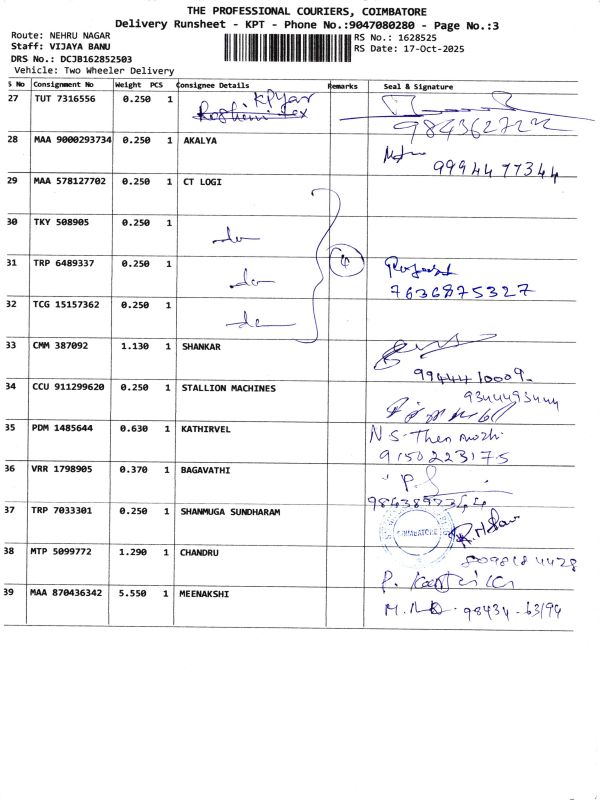 THE PROFESSIONAL COURIERS, COIMBATORE
Delivery Runsheet - KPT - Phone No.:9047080280 - Page No.:3
Route: NEHRU NAGAR
RS No.: 1628525
Staff: VIJAYA BANU
RS Date: 17-Oct-2025
DRS No.: DCJB162852503
Vehicle: Two Wheeler Delivery
S No Consignment No Weight PCS Consignee Details Remarks Seal & Signature
27 TUT 7316556 0.250 1
9843627222
28 MAA 9000293734 0.250 1 AKALYA
9994477344
29 MAA 578127702 0.250 1 CT LOGI
30 TKY 508905 0.250 1 do
4
31 TRP 6489337 0.250 1 do
7636875327
32 TCG 15157362 0.250 1 do
33 CMM 387092 1.130 1 SHANKAR
9944410009
34 CCU 911299620 0.250 1 STALLION MACHINES
9344493444
35 PDM 1485644 0.630 1 KATHIRVEL N.S. Then mozhi
9150223175
36 VRR 1798905 0.370 1 BAGAVATHI
37 TRP 7033301 0.250 1 SHANMUGA SUNDHARAM
COIMBATORE
38 MTP 5099772 1.290 1 CHANDRU
39 MAA 870436342 5.550 1 MEENAKSHI
98434-63194